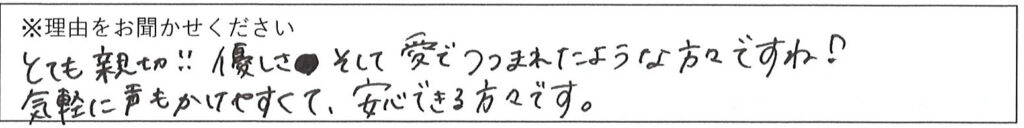 ※理由をお聞かせください
とても親切!! 優しさ そして 愛で つつまれたような方々ですね!
気軽に声もかけやすくて、安心できる方々です。